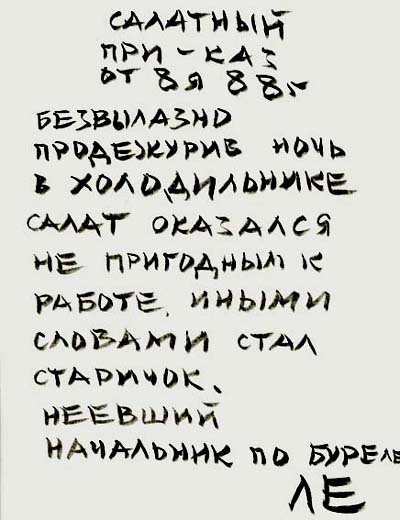 САЛАТНЫЙ
ПРИ-КАЗ
ОТ 8 Я 88.-
БЕЗВЫЛАЗНО
ПРОДЕЖУРИВ НОЧЬ
В ХОЛОДИЛЬНИКЕ
САЛАТ ОКАЗАЛСЯ
НЕ ПРИГОДНЫМ К
РАБОТЕ, ИНЫМИ
СЛОВАМИ СТАЛ
СТАРИЧОК.
НЕЕВШИЙ
НАЧАЛЬНИК ПО БУРЕЛЕ
ЛЕ